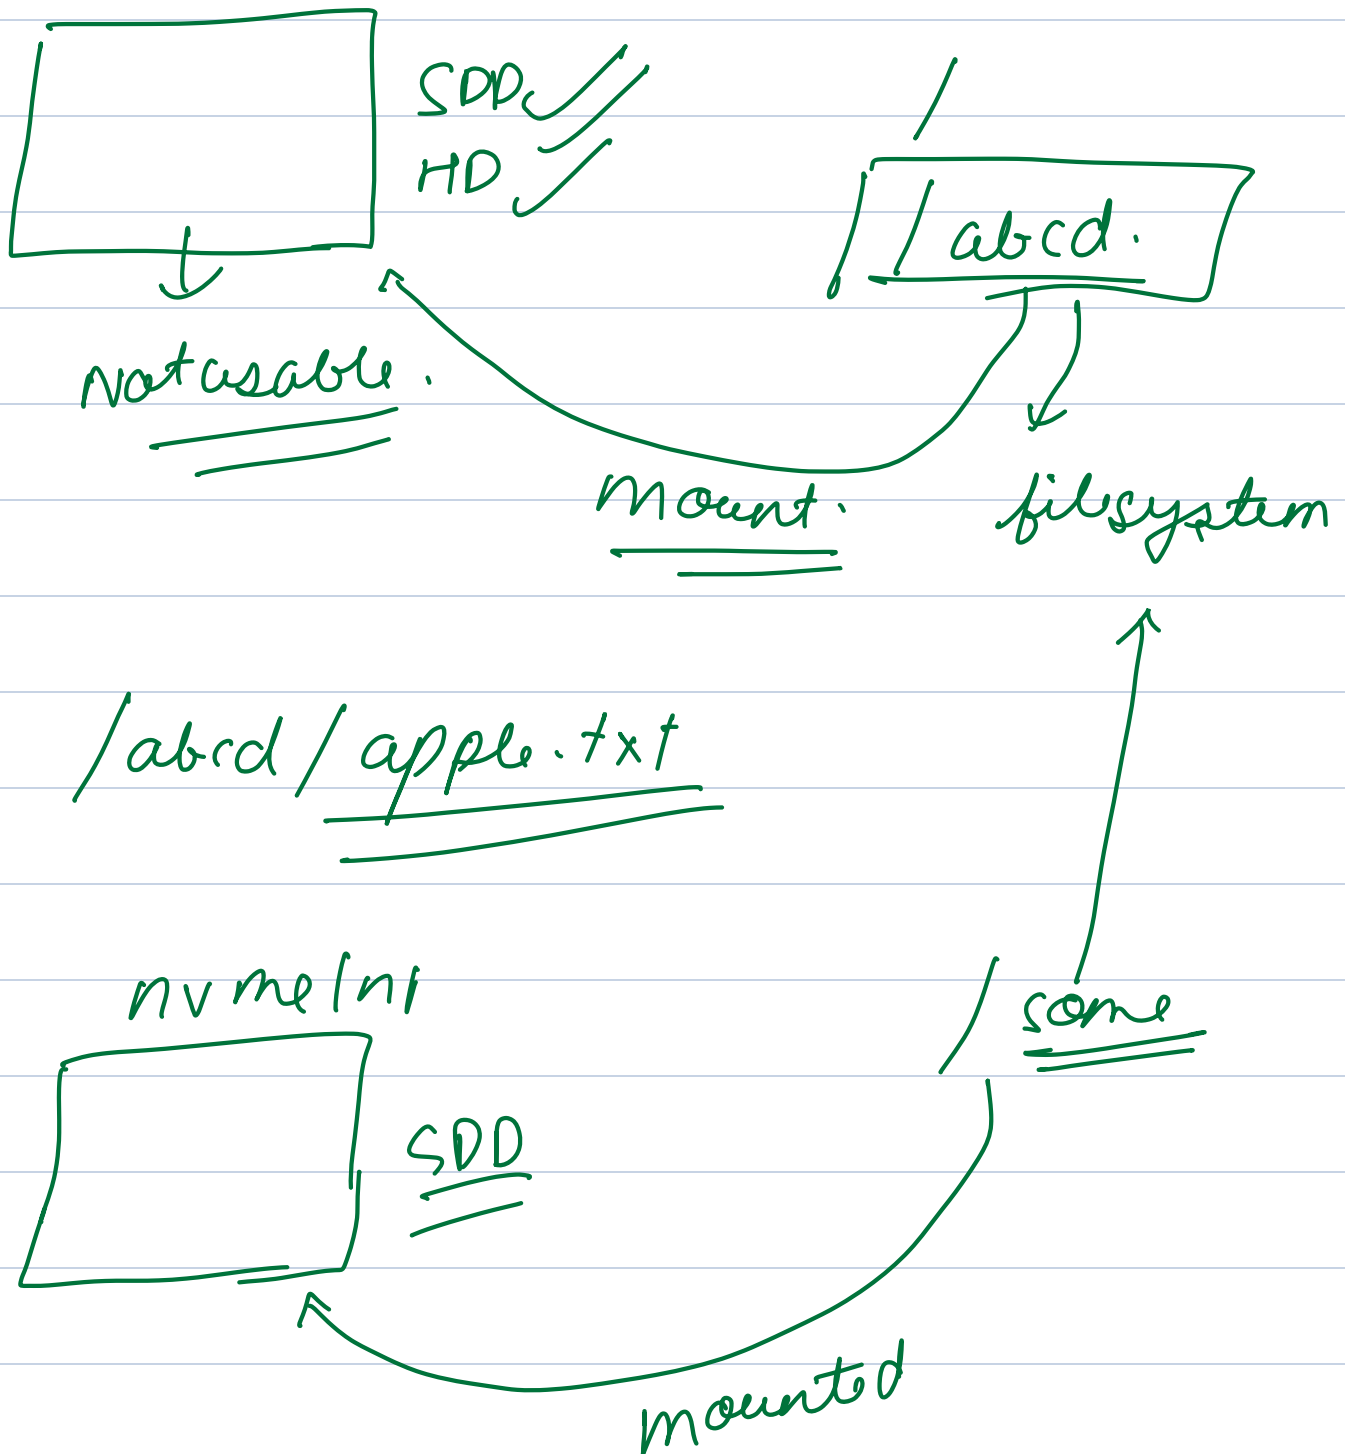 SDD
HD
/
/abcd.
Not usable.
Mount.
filesystem
/abcd/apple.txt
nvme1n1
/some
SDD
mounted